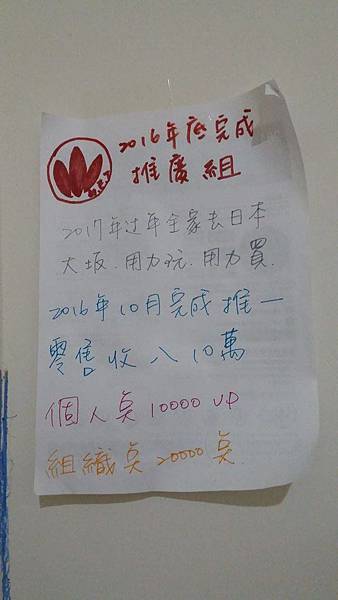 2016年底完成
推廣組
2017年过年全家去日本
大坂.用力玩.用力買.
2016年10月完成推一
零售收入10萬
個人奌10000 UP
組織奌20000奌